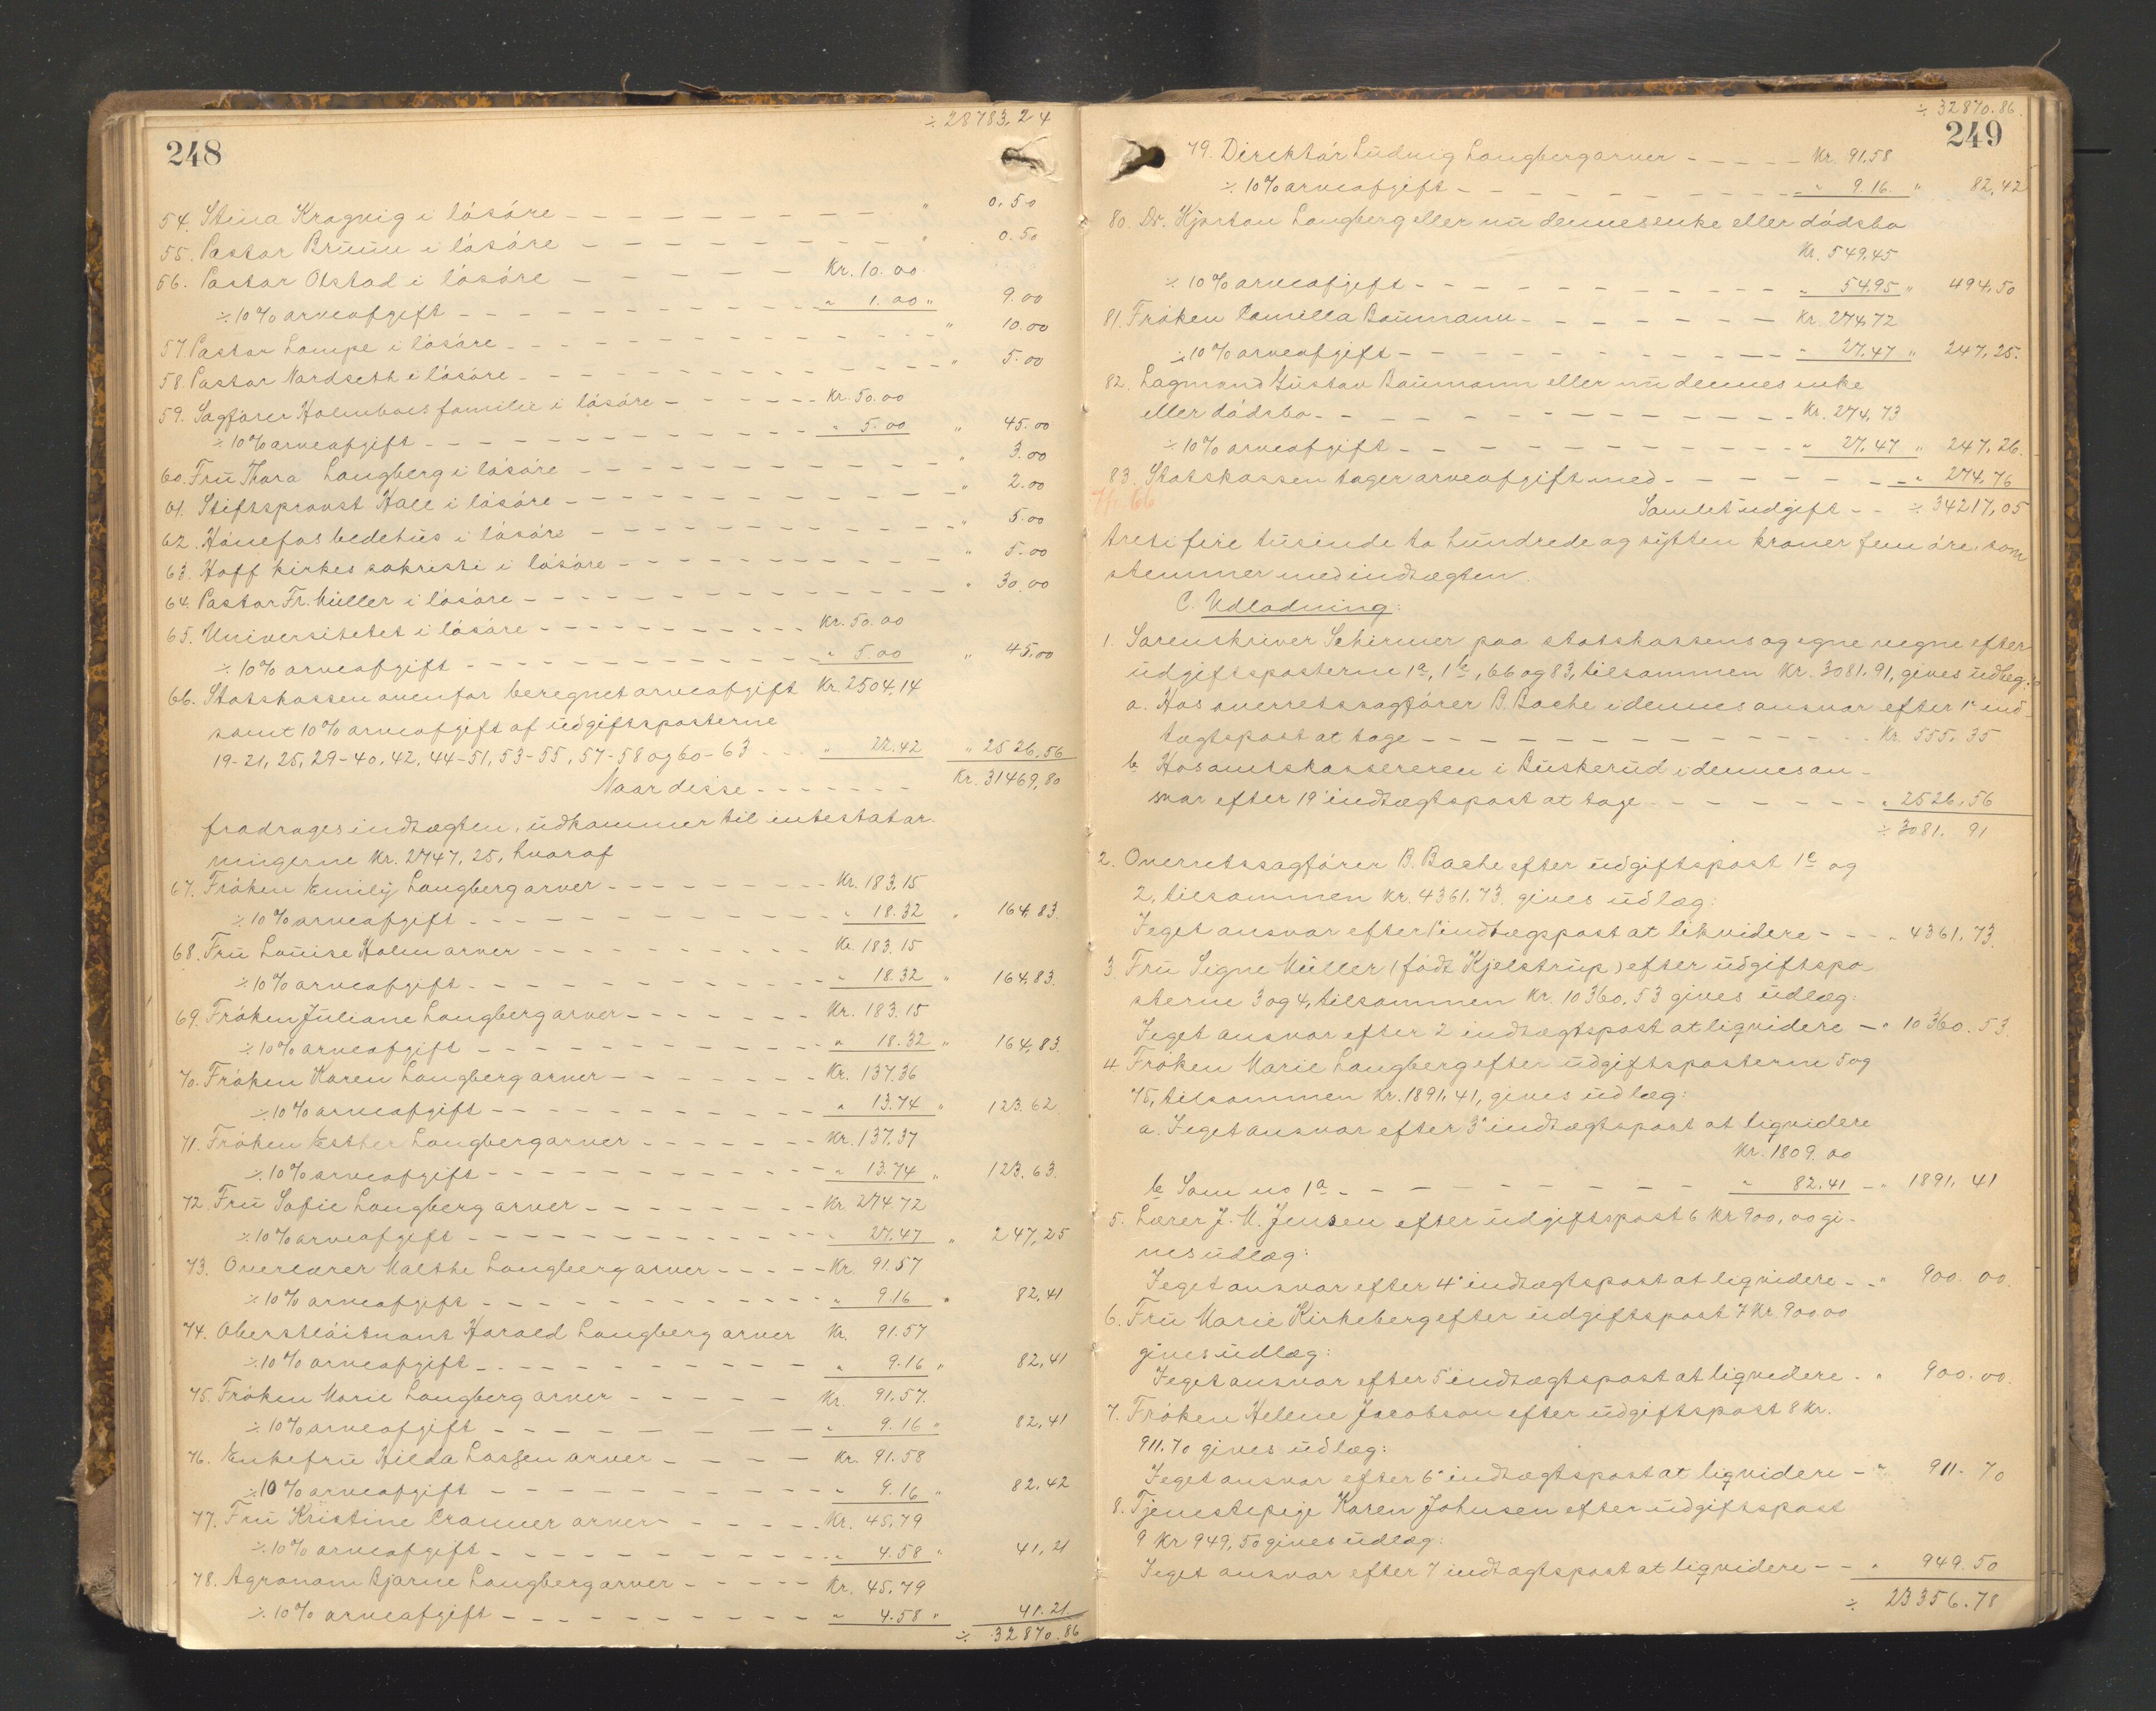 ÷ 28783,24
248
54. Stina Kragvig i lösöre " 0.50
55. Pastor Bruun i lösöre " 0.50
56. Pastor Olstad i lösöre Kr. 10.00
÷ 10% arveafgift " 1.00 " 9.00
57. Pastor Lampe i lösöre " 10.00
58. Pastor Nordseth i lösöre " 5.00
59. Sagförer Holmboes familie i lösöre Kr. 50.00
÷ 10% arveafgift " 5.00 " 45.00
60. Fru Thora Langberg i lösöre " 3.00
61. Stiftsprovst Hall i lösöre " 2.00
62. Hönefos bedehus i lösöre " 5.00
63. Hoff kirkes sakristi i lösöre " 5.00
64. Pastor Fr. Müller i lösöre " 30.00
65. Universitetet i lösöre Kr. 50.00
÷ 10% arveafgift " 5.00 " 45.00
66. Statskassen ovenfor beregnet arveafgift Kr. 2504.14
samt 10% arveafgift af udgiftsposterne
19-21, 25, 29-40, 42, 44-51, 53-55, 57-58 og 60-63 " 22.42 " 2526.56
Naar disse Kr. 31469,80
fradrages indtægten, udkommer til intestatar-
vingerne Kr. 2747,25, hvoraf
67. Fröken Emily Langberg arver Kr. 183.15
÷ 10% arveafgift " 18.32 " 164,83.
68. Fru Louise Holm arver Kr. 183.15
÷ 10% arveafgift " 18.32 " 164,83.
69. Fröken Juliane Langberg arver Kr. 183.15
÷ 10% arveafgift " 18.32 " 164,83.
70. Fröken Karen Langberg arver Kr. 137.36
÷ 10% arveafgift " 13.74 " 123.62
71. Fröken Esther Langberg arver Kr. 137.37
÷ 10% arveafgift " 13.74 " 123.63.
72. Fru Sofie Langberg arver Kr 274.72
÷ 10% arveafgift " 27.47 " 247,25
73. Overlærer Malthe Langberg arver Kr. 91.57
÷ 10% arveafgift " 9.16 " 82,41
74. Oberstlöitnant Harald Langberg arver Kr. 91.57
÷ 10% arveafgift " 9.16 " 82,41
75. Fröken Marie Langberg arver Kr. 91.57.
÷ 10% arveafgift " 9.16 " 82,41
76. Enkefru Hilda Lassen arver Kr. 91.58
÷ 10% arveafgift " 9.16 " 82.42
77. Fru Kristine Cranner arver Kr. 45,79
÷ 10% arveafgift " 4.58 " 41,21
78. Agronom Bjarne Langberg arver Kr. 45,79
÷ 10% arveafgift " 4.58 " 41.21
÷ 32870.86
÷ 32870.86.
249
79. Direktör Ludvig Langberg arver Kr. 91.58
÷ 10% arveafgift " 9.16. " 82,42
80. Dr. Hjortau Langberg eller nu dennes enke eller dödsbo
Kr. 549.45
÷ 10% arveafgift " 54.95 " 494,50
81. Fröken Camilla Baumann Kr. 274,72
÷ 10% arveafgift " 27.47 " 247,25.
82. Lagmand Gustav Baumann eller nu dennes enke
eller dödsbo Kr. 274,73
÷ 10% arveafgift " 27,47 " 247,26.
83. Statskassen tager arveafgift med " 274,76
Samlet udgift ÷ 34217,05
treti fire tusinde to hundrede og sytten kroner fem öre, som
stemmer med indtægten.
C. Udlodning:
1. Sorenskriver Schirmer paa statskassens og egne vegne efter
udgiftsposterne 1a, 1b, 66 og 83, tilsammen Kr. 3081.91, gives udlæg:
a. Hos overretssagförer B. Bache i dennes ansvar efter 1e ind-
tægtspost at tage Kr. 555,35
b. Hos amtskassereren i Buskerud i dennes an-
svar efter 19 indtægtspost at tage " 2526,56
÷ 3081. 91
2. Overretssagförer B. Bache efter udgiftspost 1c og
2, tilsammen Kr. 4361,73. gives udlæg:
I eget ansvar efter 1e indtægspost at likvidere " 4361,73.
3. Fru Signe Müller (födt Kjelstrup) efter udgiftspo-
sterne 3 og 4, tilsammen Kr. 10360,53 gives udlæg:
I eget ansvar efter 2 indtægtspost at liqvidere " 10360.53.
4 Fröken Marie Langberg efter udgiftsposterne 5 og
75, tilsammen Kr. 1891,41, gives udlæg:
a. I eget ansvar efter 3e indtægtspost at liqvidere
Kr. 1809.00
b Som no 1a " 82,41 " 1891,41
5. Lærer J. M. Jensen efter udgiftspost 6 Kr 900,00 gi-
ves udlæg:
I eget ansvar efter 4e indtægtspost at liqvidere " 900.00.
6. Fru Marie Kirkeberg efter udgiftspost 7 Kr. 900.00
gives udlæg:
I eget ansvar efter 5 indtægtspost at liqvidere " 900.00.
7. Fröken Helene Jacobson efter udgiftspost 8 Kr.
911.70 gives udlæg:
I eget ansvar efter 6e indtægtspost at liqvidere " 911.70
8. Tjenestepige Karen Johnsen efter udgiftspost
9 Kr 949,50 gives udlæg:
I eget ansvar efter 7 indtægtspost at liqvidere " 949.50
÷ 23356.78